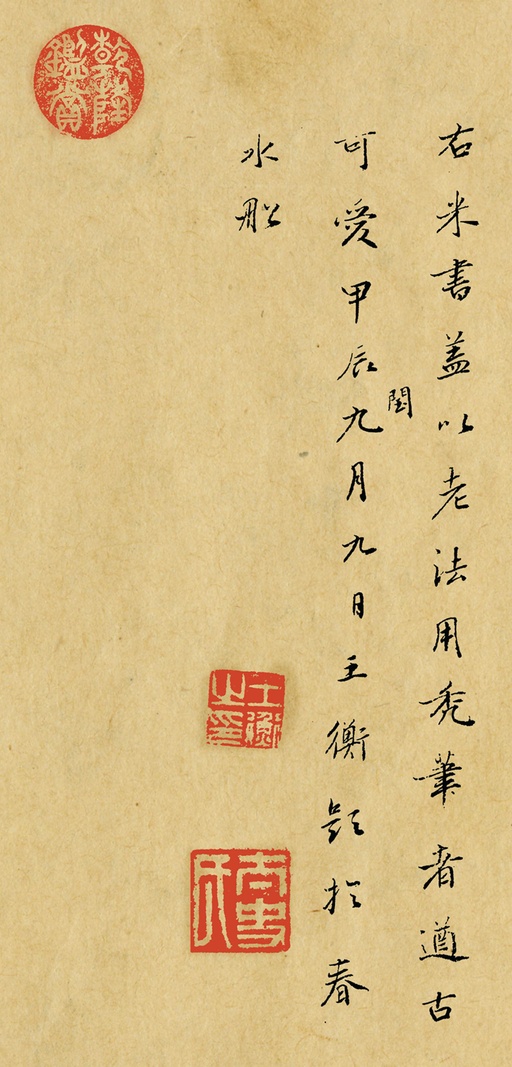 右米書蓋以老法用禿筆者遒古
可愛甲辰閏九月九日王衡題於春
水船
王衡之印
乾隆鑑賞